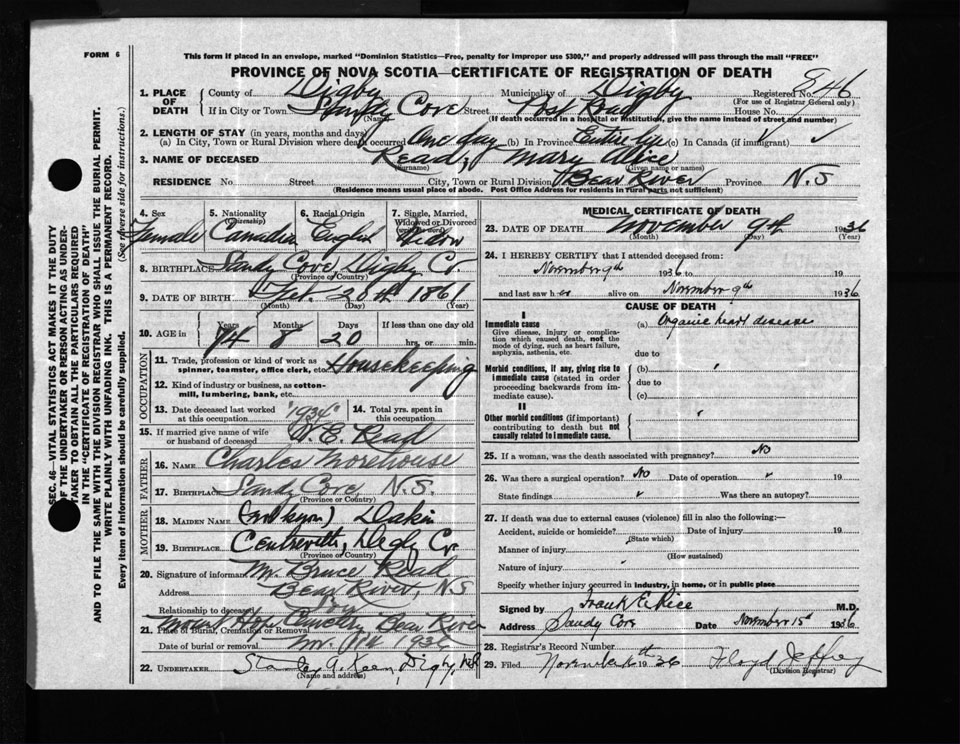 FORM 6
This form if placed in an envelope, marked "Dominion Statistics—Free, penalty for improper use $300," and properly addressed will pass through the mail "FREE"
PROVINCE OF NOVA SCOTIA—CERTIFICATE OF REGISTRATION OF DEATH
846
1. PLACE OF DEATH
County of Digby Municipality of Digby Registered No.
(For use of Registrar General only)
If in City or Town Sandy Cove Street Post Road House No.
(Name) (If death occurred in a hospital or institution, give the name instead of street and number)
2. LENGTH OF STAY (in years, months and days)
(a) In City, Town or Rural Division where death occurred One day (b) In Province Entire life (c) In Canada (if immigrant) ✓
3. NAME OF DECEASED Read, Mary Alice
(Surname) (Given name or names)
RESIDENCE No. Street City, Town or Rural Division Bear River Province N.S
(Residence means usual place of abode. Post Office Address for residents in rural parts not sufficient)
4. Sex Female
5. Nationality (Citizenship) Canadian
6. Racial Origin English
7. Single, Married, Widowed or Divorced (write the word) Widow
8. BIRTHPLACE Sandy Cove, Digby Co.
(Province or Country)
9. DATE OF BIRTH 20th 1861
(Month) (Day) (Year)
10. AGE in Years Months Days If less than one day old
74 8 20 hrs. or min.
OCCUPATION
11. Trade, profession or kind of work as spinner, teamster, office clerk, etc. Housekeeping
12. Kind of industry or business, as cotton-mill, lumbering, bank, etc.
13. Date deceased last worked at this occupation "1934"
14. Total yrs. spent in this occupation
15. If married give name of wife or husband of deceased W. E. Read
FATHER
16. NAME Charles Morehouse
17. Birthplace Sandy Cove, N.S.
(Province or Country)
MOTHER
18. MAIDEN NAME Dakin
19. BIRTHPLACE Digby Co.
(Province or Country)
20. Signature of informant Mr. Bruce Read
Address Bear River, N.S
Relationship to deceased Son
21. Place of Burial, Cremation or Removal Mount Hope Cemetery Bear River
Date of burial or removal 1936
22. UNDERTAKER Stanley A. Keen, Digby, N.S
(Name and address)
MEDICAL CERTIFICATE OF DEATH
23. DATE OF DEATH November 9th 1936
(Month) (Day) (Year)
24. I HEREBY CERTIFY that I attended deceased from:
November 9th 1936 to 19
and last saw her alive on November 9th 1936
CAUSE OF DEATH
I
Immediate cause
Give disease, injury or complication which caused death, not the mode of dying, such as heart failure, asphyxia, asthenia, etc.
(a) Organic heart disease
due to
Morbid conditions, if any, giving rise to immediate cause (stated in order proceeding backwards from immediate cause).
(b)
due to
(c)
II
Other morbid conditions (if important) contributing to death but not causally related to immediate cause.
25. If a woman, was the death associated with pregnancy? No
26. Was there a surgical operation? No Date of operation 19
State findings Was there an autopsy?
27. If death was due to external causes (violence) fill in also the following:—
Accident, suicide or homicide? Date of injury 19
(State which)
Manner of injury
(How sustained)
Nature of injury
Specify whether injury occurred in industry, in home, or in public place
Signed by Frank E. Rice M.D.
Address Sandy Cove Date November 15th 1936
28. Registrar's Record Number
29. Filed November 1936 Floyd Jeffrey
(Division Registrar)
SEC. 46—VITAL STATISTICS ACT MAKES IT THE DUTY
OF THE UNDERTAKER OR PERSON ACTING AS UNDER-
TAKER TO OBTAIN ALL THE PARTICULARS REQUIRED
IN THE "CERTIFICATE OF REGISTRATION OF DEATH"
AND TO FILE THE SAME WITH THE DIVISION REGISTRAR WHO SHALL ISSUE THE BURIAL PERMIT.
WRITE PLAINLY WITH UNFADING INK. THIS IS A PERMANENT RECORD.
Every item of information should be carefully supplied. (See reverse side for instructions.)